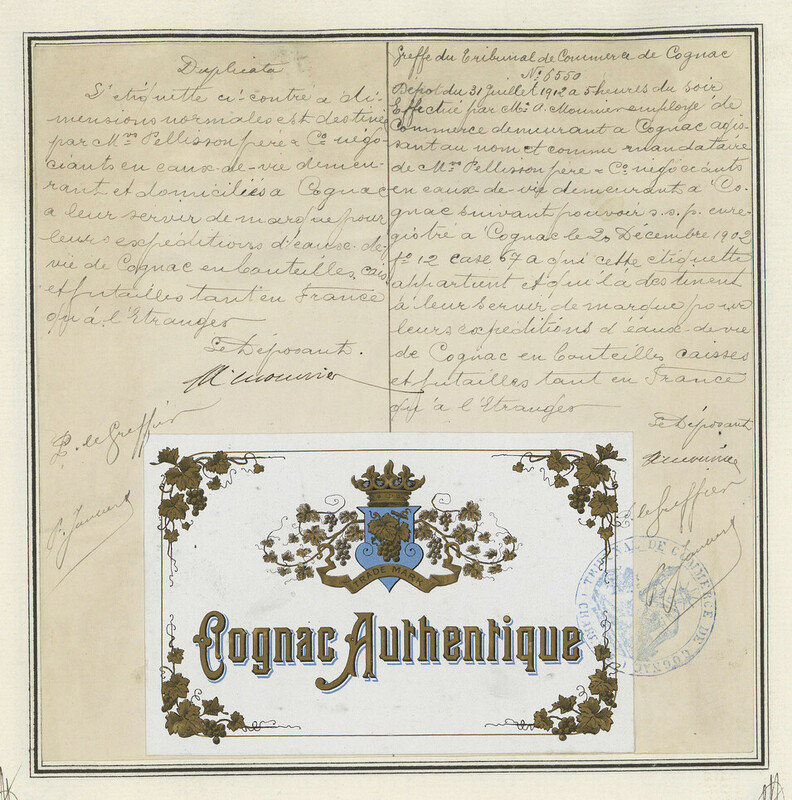 Duplicata
L'étiquette ci-contre a di-
mensions normales est destinée
par Mrs Pellisson père & Co négo-
ciants en eaux-de-vie demeu-
rant et domiciliés à Cognac
a leur servir de marque pour
leurs expéditions d'eaux-de-
vie de Cognac en bouteilles, cais
et futailles tant en France
qu'à l'Etranger
Le Déposant.
A. Mounier
P. le Greffier
Greffe du Tribunal de Commerce de Cognac
No 6550
Dépôt du 31 Juillet 1912 à 5 heures du soir
Effectué par Mr A. Mounier employé de
Commerce demeurant à Cognac agis-
sant au nom et comme mandataire
de Mrs Pellisson père & Co négociants
en eaux-de-vie demeurant à Co-
gnac suivant pouvoir s.s.p. enre-
gistré à Cognac le 20 Décembre 1902
fo 12 case 67 à qui cette étiquette
appartient et qui la destinent
à leur servir de marque pour
leurs expéditions d'eaux-de-vie
de Cognac en bouteilles caisses
et futailles tant en France
qu'à l'Etranger
Le Déposant
A. Mounier
P. le Greffier
TRADE MARK
Cognac Authentique
TRIBUNAL DE COMMERCE DE COGNAC